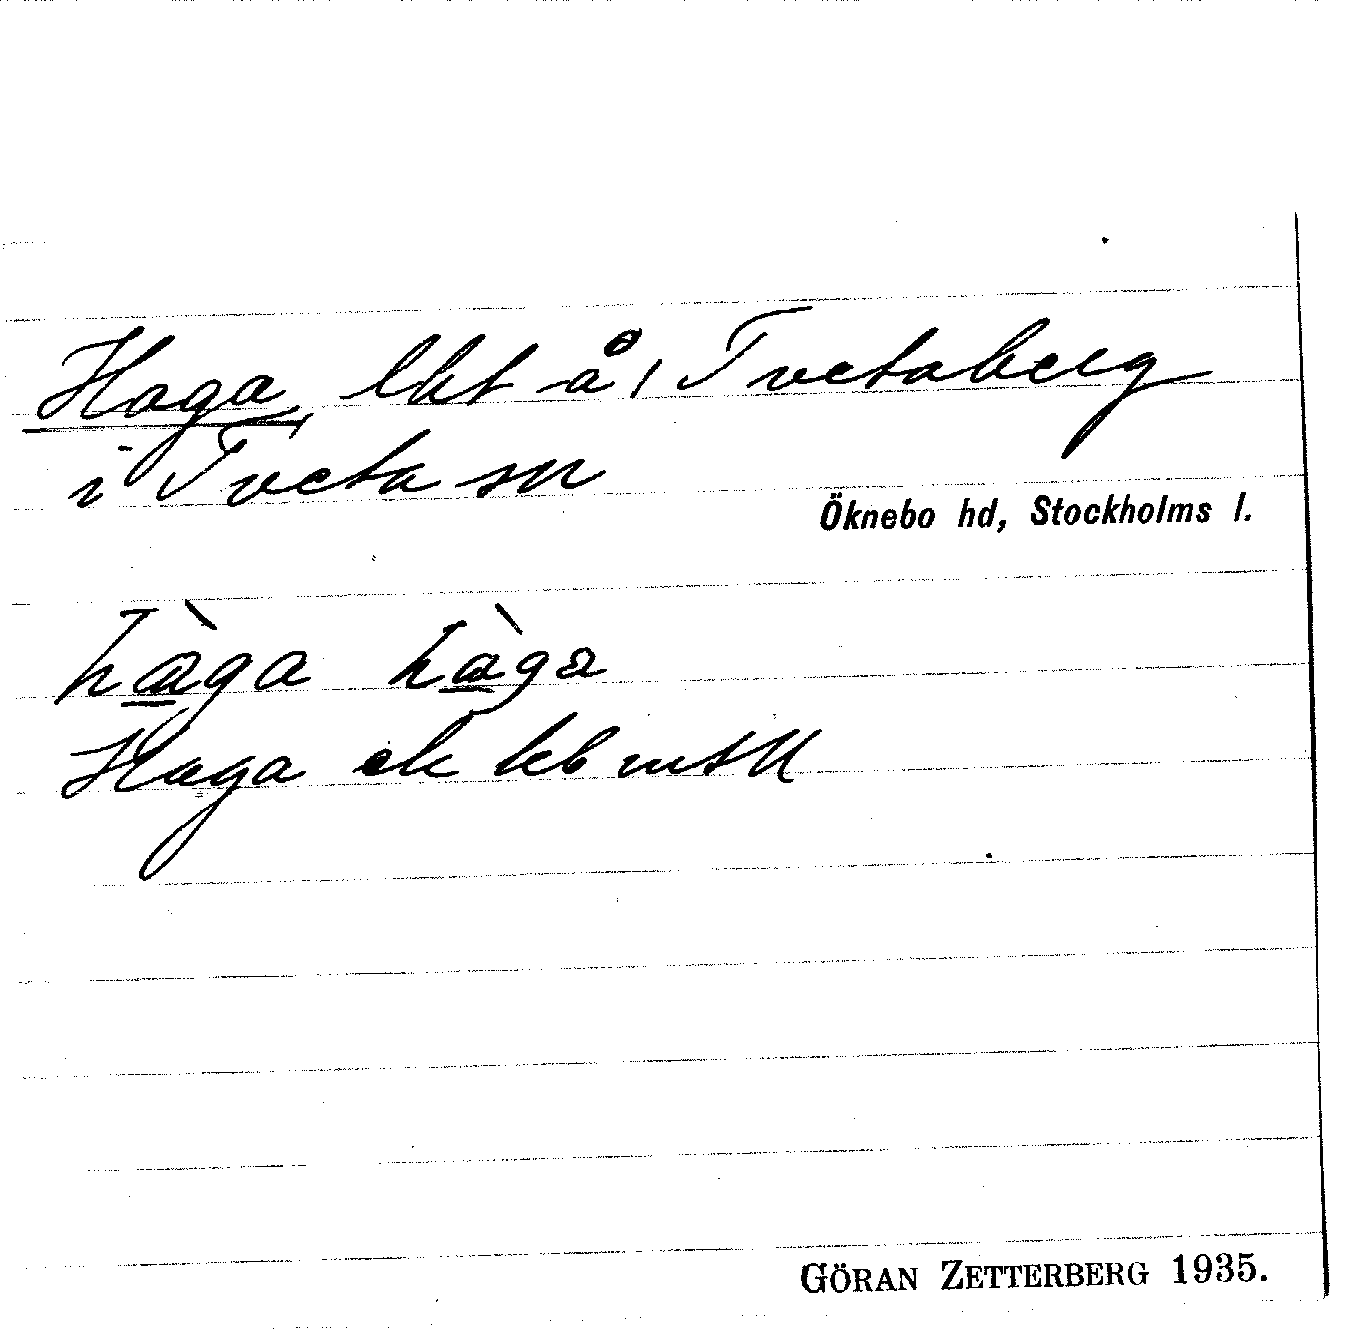 Haga, lht å, Tvetaberg
i Tveta sn
Öknebo hd, Stockholms l.
hàga hàga
Haga ek kb mtll
GÖRAN ZETTERBERG 1935.